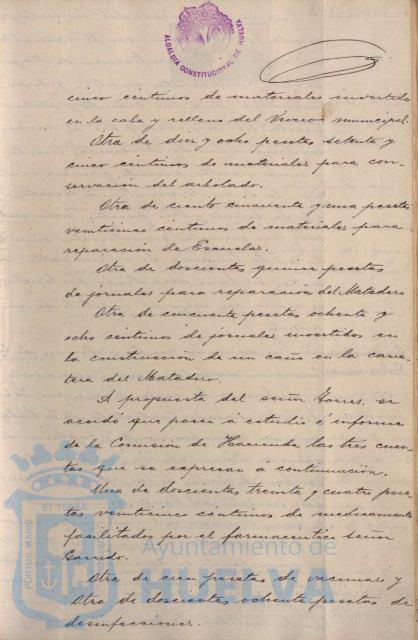 ALCALDIA CONSTITUCIONAL DE HUELVA
cinco céntimos de materiales invertidos
en la caba y relleno del Vivero municipal.
Otra de diez y ocho pesetas setenta y
cinco céntimos de materiales para con-
servación del arbolado.
Otra de ciento cincuenta y una pesetas
veinticinco céntimos de materiales para
reparación de Escuelas.
Otra de doscientas quince pesetas
de jornales para reparación del Matadero
Otra de cincuenta pesetas ochenta y
ocho céntimos de jornales invertidos en
la construcción de un caño en la carre-
tera del Matadero.
A propuesta del señor Torres, se
acordó que pasen á estudio é informe
de la Comisión de Hacienda las tres cuen-
tas que se expresan á continuación.
Una de doscientas treinta y cuatro pese-
tas veinticinco céntimos de medicamentos
facilitados por el farmacéutico señor
Garrido.
Otra de cien pesetas de vacunas y
Otra de doscientas ochenta pesetas de
desinfecciones.
PORTUS MARIS
Ayuntamiento de
HUELVA